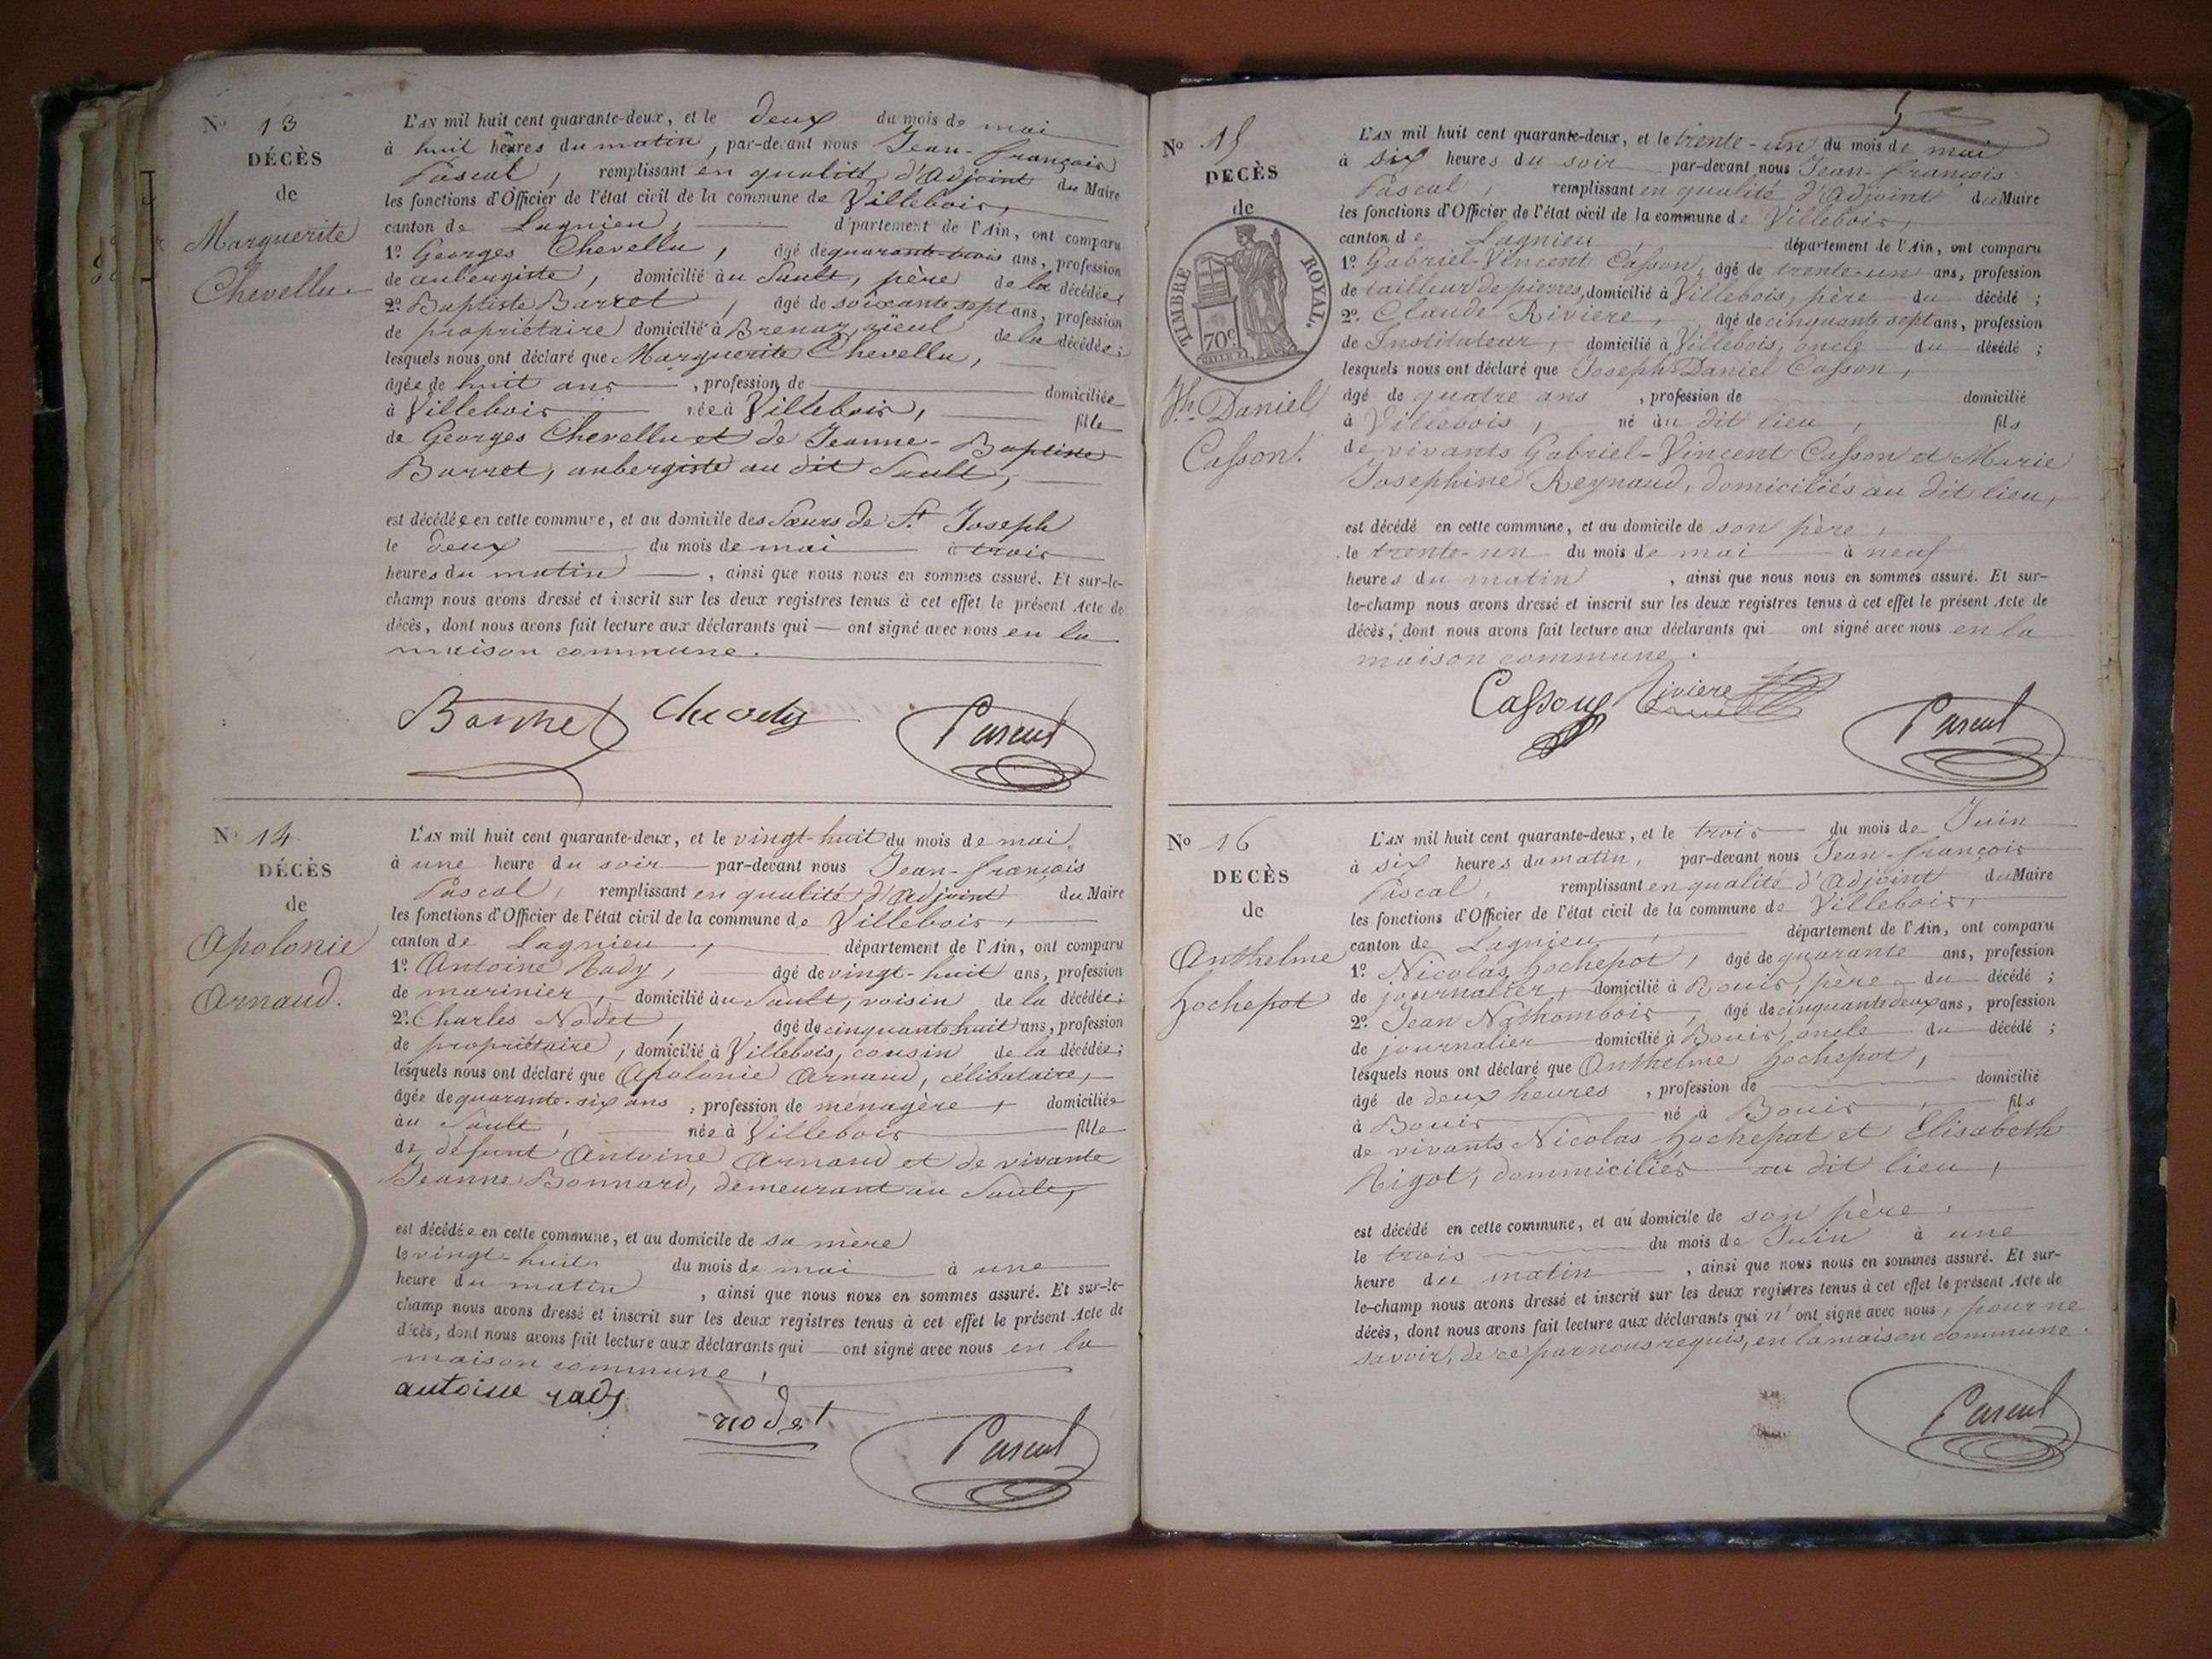 N° 13
DÉCÈS
de
Marguerite
Chevellu
L'AN mil huit cent quarante-deux, et le deux du mois de mai
à huit heures du matin, par-devant nous Jean-françois
Pascal, remplissant en qualité d'Adjoint du Maire
les fonctions d'Officier de l'état civil de la commune de Villebois,
canton de Lagnieu, département de l'Ain, ont comparu
1° Georges Chevellu, âgé de quarante-trois ans, profession
de aubergiste, domicilié àu Sault, père de la décédée;
2° Baptiste Barret, âgé de soixante sept ans, profession
de propriétaire domicilié à Brenaz, aïeul de la décédée;
lesquels nous ont déclaré que Marguerite Chevellu,
âgée de huit ans, profession de domiciliée
à Villebois née à Villebois, fille
de Georges Chevellu et de Jeanne-Baptiste
Barret, aubergiste au dit Sault,
est décédée en cette commune, et au domicile des Sœurs de St Joseph
le deux du mois de mai à trois
heures du matin, ainsi que nous nous en sommes assuré. Et sur-le-
champ nous avons dressé et inscrit sur les deux registres tenus à cet effet le présent Acte de
décès, dont nous avons fait lecture aux déclarants qui ont signé avec nous en la
maison commune.
Pascal
N° 14
DÉCÈS
de
Apolonie
Arnaud.
L'AN mil huit cent quarante-deux, et le vingt-huit du mois de mai
à une heure du soir par-devant nous Jean-françois
Pascal, remplissant en qualité d'Adjoint du Maire
les fonctions d'Officier de l'état civil de la commune de Villebois,
canton de Lagnieu, département de l'Ain, ont comparu
1° Antoine Rady, âgé de vingt-huit ans, profession
de marinier, domicilié àu Sault, voisin de la décédée;
2° Charles Nodet, âgé de cinquante huit ans, profession
de propriétaire, domicilié à Villebois, cousin de la décédée;
lesquels nous ont déclaré que Apolonie Arnaud, célibataire,
âgée de quarante-six ans, profession de ménagère, domiciliée
àu Sault, née à Villebois fille
de défunt Antoine Arnaud et de vivante
Jeanne Bonnard, demeurant au Sault,
est décédée en cette commune, et au domicile de sa mère
le vingt-huit du mois de mai à une
heure du matin, ainsi que nous nous en sommes assuré. Et sur-le-
champ nous avons dressé et inscrit sur les deux registres tenus à cet effet le présent Acte de
décès, dont nous avons fait lecture aux déclarants qui ont signé avec nous en la
maison commune,
antoine rady
nodet
Pascal
5
N° 15
DECÈS
de
TIMBRE ROYAL.
70c.
Jh Daniel
Casson.
L'AN mil huit cent quarante-deux, et le trente-un du mois de mai
à six heures du soir par-devant nous Jean-françois
Pascal, remplissant en qualité d'Adjoint du Maire
les fonctions d'Officier de l'état civil de la commune de Villebois,
canton de Lagnieu, département de l'Ain, ont comparu
1° Gabriel-Vincent Casson, âgé de trente-un ans, profession
de tailleur de pierres, domicilié à Villebois, père du décédé;
2° Claude Riviere, âgé de cinquante sept ans, profession
de Instituteur, domicilié à Villebois, oncle du décédé;
lesquels nous ont déclaré que Joseph Daniel Casson,
âgé de quatre ans, profession de domicilié
à Villebois, né àu dit lieu, fils
de vivants Gabriel-Vincent Casson et Marie
Josephine Reynaud, domiciliés au dit lieu,
est décédé en cette commune, et au domicile de son père,
le trente-un du mois de mai à neuf
heures du matin, ainsi que nous nous en sommes assuré. Et sur-
le-champ nous avons dressé et inscrit sur les deux registres tenus à cet effet le présent Acte de
décès, dont nous avons fait lecture aux déclarants qui ont signé avec nous en la
maison commune.
Casson Riviere
Pascal
N° 16
DECÈS
de
Anthelme
hochepot
L'AN mil huit cent quarante-deux, et le trois du mois de Juin
à six heures du matin, par-devant nous Jean-françois
Pascal, remplissant en qualité d'Adjoint du Maire
les fonctions d'Officier de l'état civil de la commune de Villebois,
canton de Lagnieu, département de l'Ain, ont comparu
1° Nicolas hochepot, âgé de quarante ans, profession
de journalier, domicilié à Bouis, père du décédé;
2° Jean Nathombois, âgé de cinquante deux ans, profession
de journalier domicilié à Bouis, oncle du décédé;
lesquels nous ont déclaré que Anthelme hochepot,
âgé de deux heures, profession de domicilié
à Bouis né à Bouis, fils
de vivants Nicolas hochepot et Elisabeth
Rigot, dommiciliés au dit lieu,
est décédé en cette commune, et au domicile de son père,
le trois du mois de Juin à une
heure du matin, ainsi que nous nous en sommes assuré. Et sur-
le-champ nous avons dressé et inscrit sur les deux registres tenus à cet effet le présent Acte de
décès, dont nous avons fait lecture aux déclarants qui n'ont signé avec nous, pour ne
savoir, de ce par nous requis, en la maison commune.
Pascal